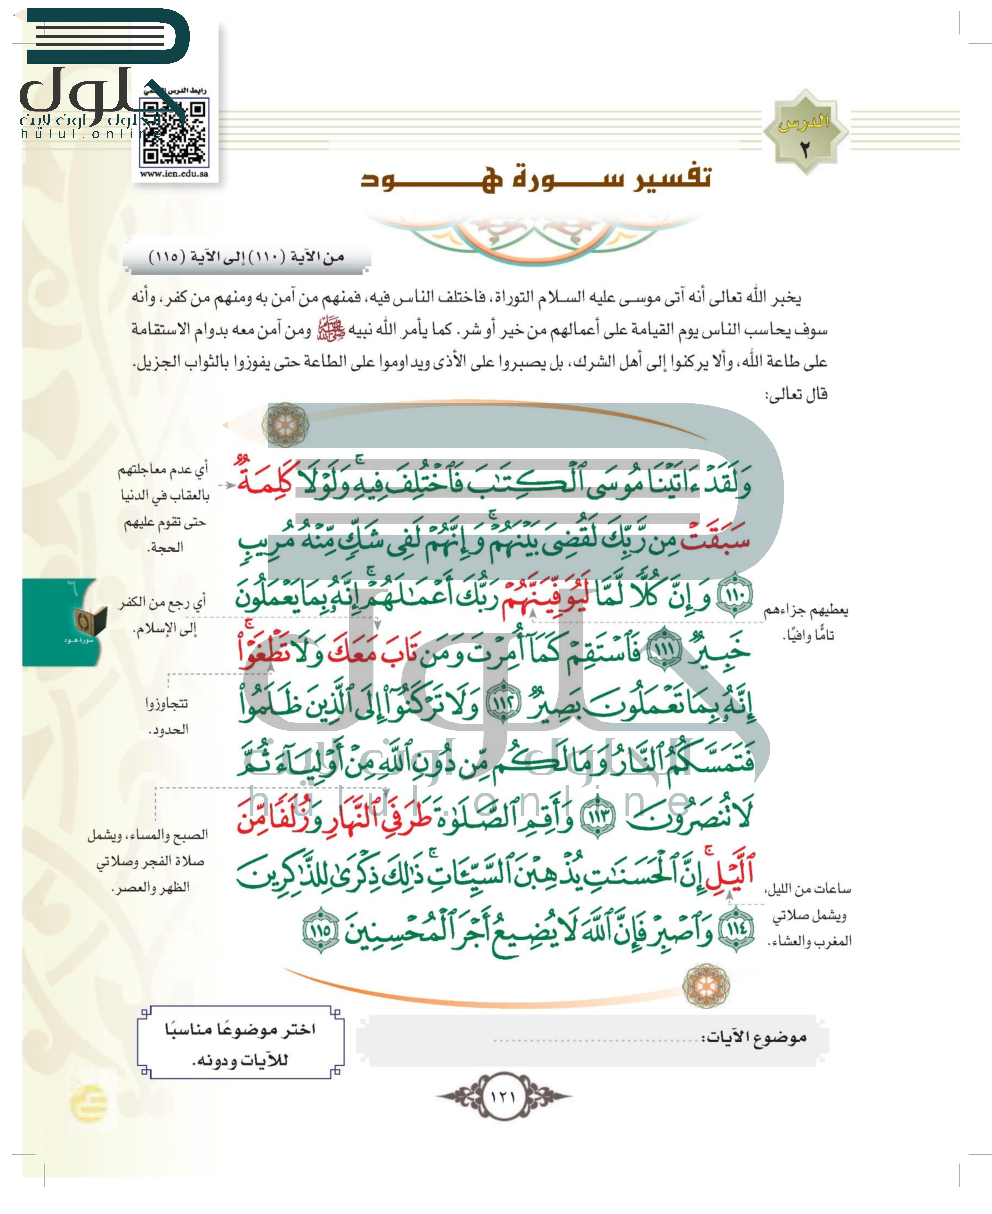 حلول
الحلول اون لاين
hulul.online
رابط الدرس الرقمي
www.ien.edu.sa
الدرس
٢
تفسير سورة هود
من الآية (١١٠) إلى الآية (١١٥)
يخبر الله تعالى أنه آتى موسى عليه السلام التوراة، فاختلف الناس فيه، فمنهم من آمن به ومنهم من كفر، وأنه
سوف يحاسب الناس يوم القيامة على أعمالهم من خير أو شر. كما يأمر الله نبيه ﷺ ومن آمن معه بدوام الاستقامة
على طاعة الله، وألا يركنوا إلى أهل الشرك، بل يصبروا على الأذى ويداوموا على الطاعة حتى يفوزوا بالثواب الجزيل.
قال تعالى:
وَلَقَدْ ءَاتَيْنَا مُوسَى ٱلْكِتَٰبَ فَٱخْتُلِفَ فِيهِ ۚ وَلَوْلَا كَلِمَةٌ
سَبَقَتْ مِن رَّبِّكَ لَقُضِىَ بَيْنَهُمْ ۚ وَإِنَّهُمْ لَفِى شَكٍّ مِّنْهُ مُرِيبٍ
١١٠ وَإِنَّ كُلًّا لَّمَّا لَيُوَفِّيَنَّهُمْ رَبُّكَ أَعْمَٰلَهُمْ ۚ إِنَّهُۥ بِمَا يَعْمَلُونَ
خَبِيرٌ ١١١ فَٱسْتَقِمْ كَمَآ أُمِرْتَ وَمَن تَابَ مَعَكَ وَلَا تَطْغَوْا۟ ۚ
إِنَّهُۥ بِمَا تَعْمَلُونَ بَصِيرٌ ١١٢ وَلَا تَرْكَنُوٓا۟ إِلَى ٱلَّذِينَ ظَلَمُوا۟
فَتَمَسَّكُمُ ٱلنَّارُ وَمَا لَكُم مِّن دُونِ ٱللَّهِ مِنْ أَوْلِيَآءَ ثُمَّ
لَا تُنصَرُونَ ١١٣ وَأَقِمِ ٱلصَّلَوٰةَ طَرَفَىِ ٱلنَّهَارِ وَزُلَفًا مِّنَ
ٱلَّيْلِ ۚ إِنَّ ٱلْحَسَنَٰتِ يُذْهِبْنَ ٱلسَّيِّـَٔاتِ ۚ ذَٰلِكَ ذِكْرَىٰ لِلذَّٰكِرِينَ
١١٤ وَٱصْبِرْ فَإِنَّ ٱللَّهَ لَا يُضِيعُ أَجْرَ ٱلْمُحْسِنِينَ ١١٥
يعطيهم جزاءهم
تامًّا وافيًا.
ساعات من الليل،
ويشمل صلاتي
المغرب والعشاء.
أي عدم معاجلتهم
بالعقاب في الدنيا
حتى تقوم عليهم
الحجة.
أي رجع من الكفر
إلى الإسلام.
تتجاوزوا
الحدود.
الصبح والمساء، ويشمل
صلاة الفجر وصلاتي
الظهر والعصر.
سورة هود
حلول
الحلول اون لاين
hulul.online
موضوع الآيات: ........................................
اختر موضوعًا مناسبًا
للآيات ودونه.
١٢١